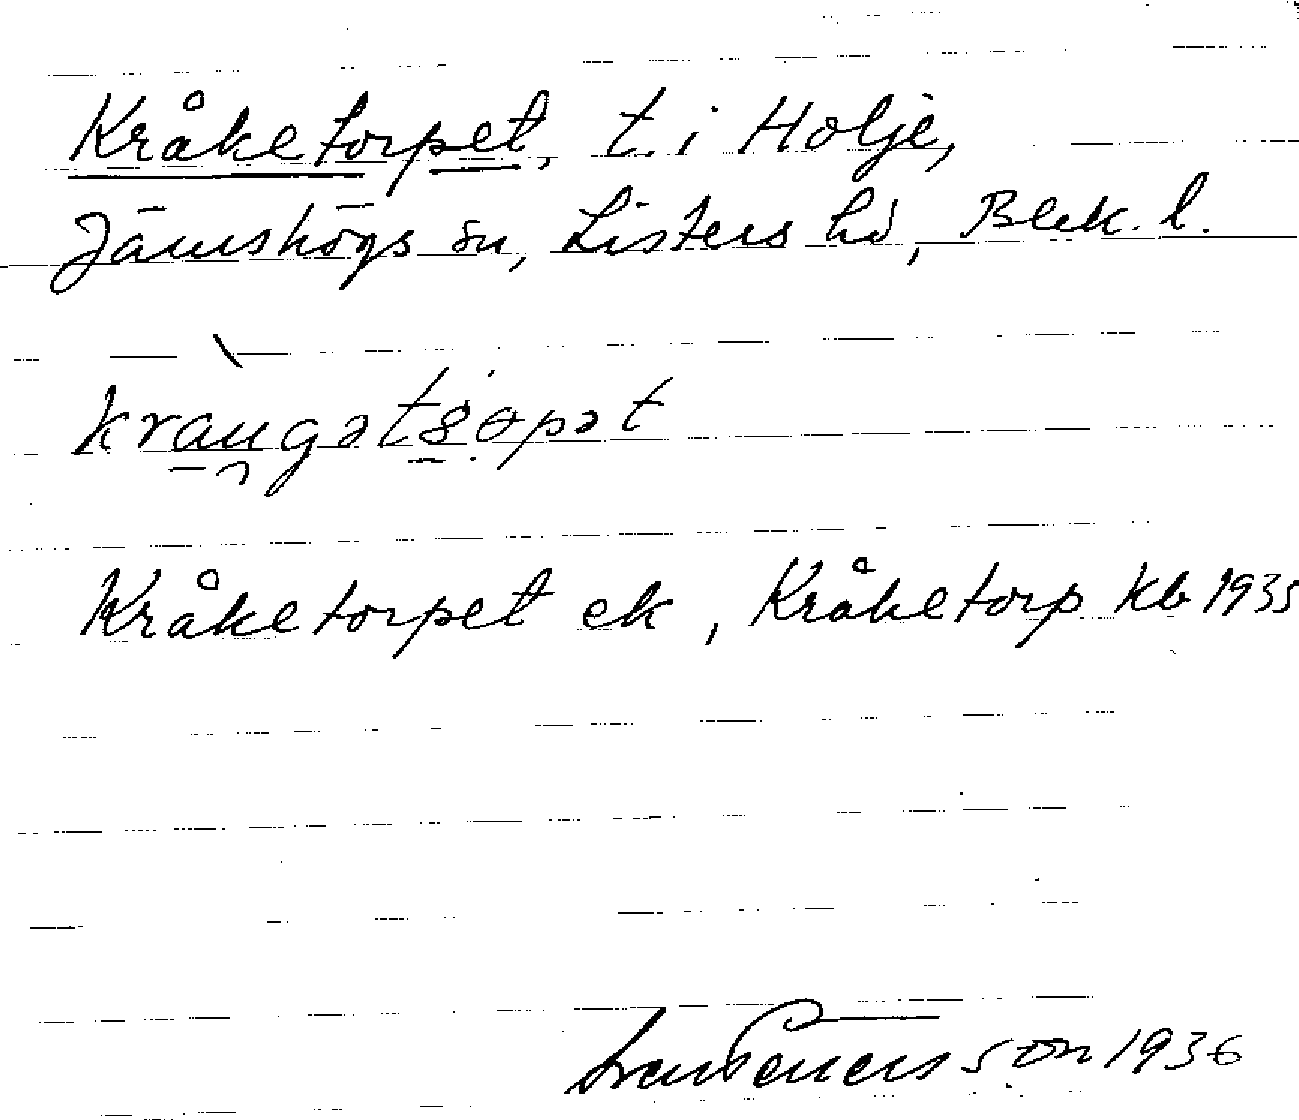 Kråketorpet, t. i Holje,
Jämshögs sn, Listers hd, Blek. l.
kraugətsopət
Kråketorpet ek, Kråketorp Kb 1935
1936